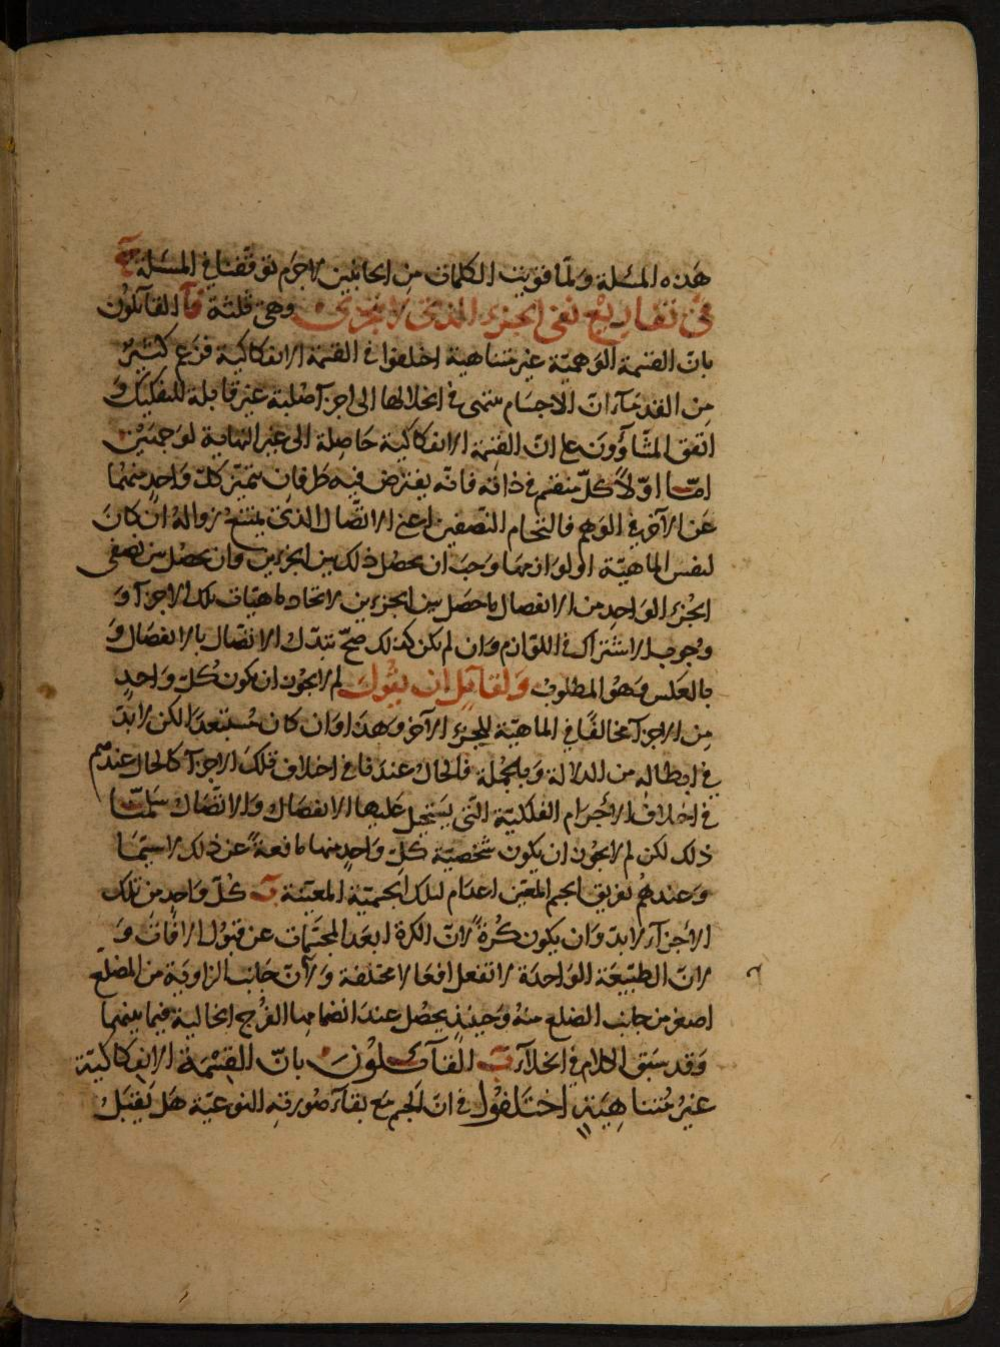 هذه المسئلة ولما قويت الكلمات من الجانبين لاجرم توقفنا في المسئلة ج
في تفاريع نفي الجزء الذي لا يتجزى وهي ثلثة آ القآئلون
بان القسمة الوهمية غير متناهية اختلفوا في القسمة الانفكاكية فزعم كثير
من القدمآء ان الاجسام تنتهى في انحلالها الى اجزآ صلبة غير قابلة للتفكيك و
اتفق المشآؤون على ان القسمة الانفكاكية حاصلة الى غير النهاية لوجهين
امّا اوّلا كلّ منقسم في ذاته فانه يفترض فيه طرفان يتميّز كلّ واحد منهما
عن الآخر في الوهم فالتحام النّصفين اعني الاتّصال الذي يمتنع زواله ان كان
لنفس الماهيّة او لوازمها وجب ان يحصل ذلك بين الجزءين وان يحصل بين نصفي
الجزء الواحد من الانفصال ما حصل بين الجزءين لاتحاد ماهيّات تلك الاجزآ و
وجوب الاشتراك في اللوازم وان لم يكن كذلك صحّ تبدّل الاتّصال بالانفصال و
بالعكس وهو المطلوب ولقآئل ان يقول لم لا يجوز ان يكون كلّ واحد
من الاجزآ مخالفًا في الماهيّة للجزء الآخر وهذا وان كان مستبعدا لكن لا بدّ
في ابطاله من الدلالة وبالجملة فالحال عندنا في اختلاف تلك الاجزآ كالحال عندهم
في اختلاف الاجرام الفلكيّة التي يستحيل عليها الانفصال والاتّصال سلّمنا
ذلك لكن لم لا يجوز ان يكون شخصيّة كلّ واحد منها مانعة عن ذلك لا سيّما
وعندهم تفريق الجسم المعيّن اعدام لتلك الجسميّة المعيّنة ب كلّ واحد من تلك
الاجزآء لا بدّ وان يكون كرة لانّ الكرة ابعد المجسّمات عن قبول الافات و
لانّ الطبيعة الواحدة لا تفعل افعالا مختلفة ولانّ جانب الزاوية من المضلّع
اصغر من جانب الضلع منه وحينئذ يحصل عند انضمامها الفُرج الخالية فيما بينهما
وقد سبق الكلام في الخلآء القآئلون بانّ القسمة الانفكاكيّة
غير متناهية اختلفوا في انّ الجسم مع بقآء صورته النوعيّة هل يقبل